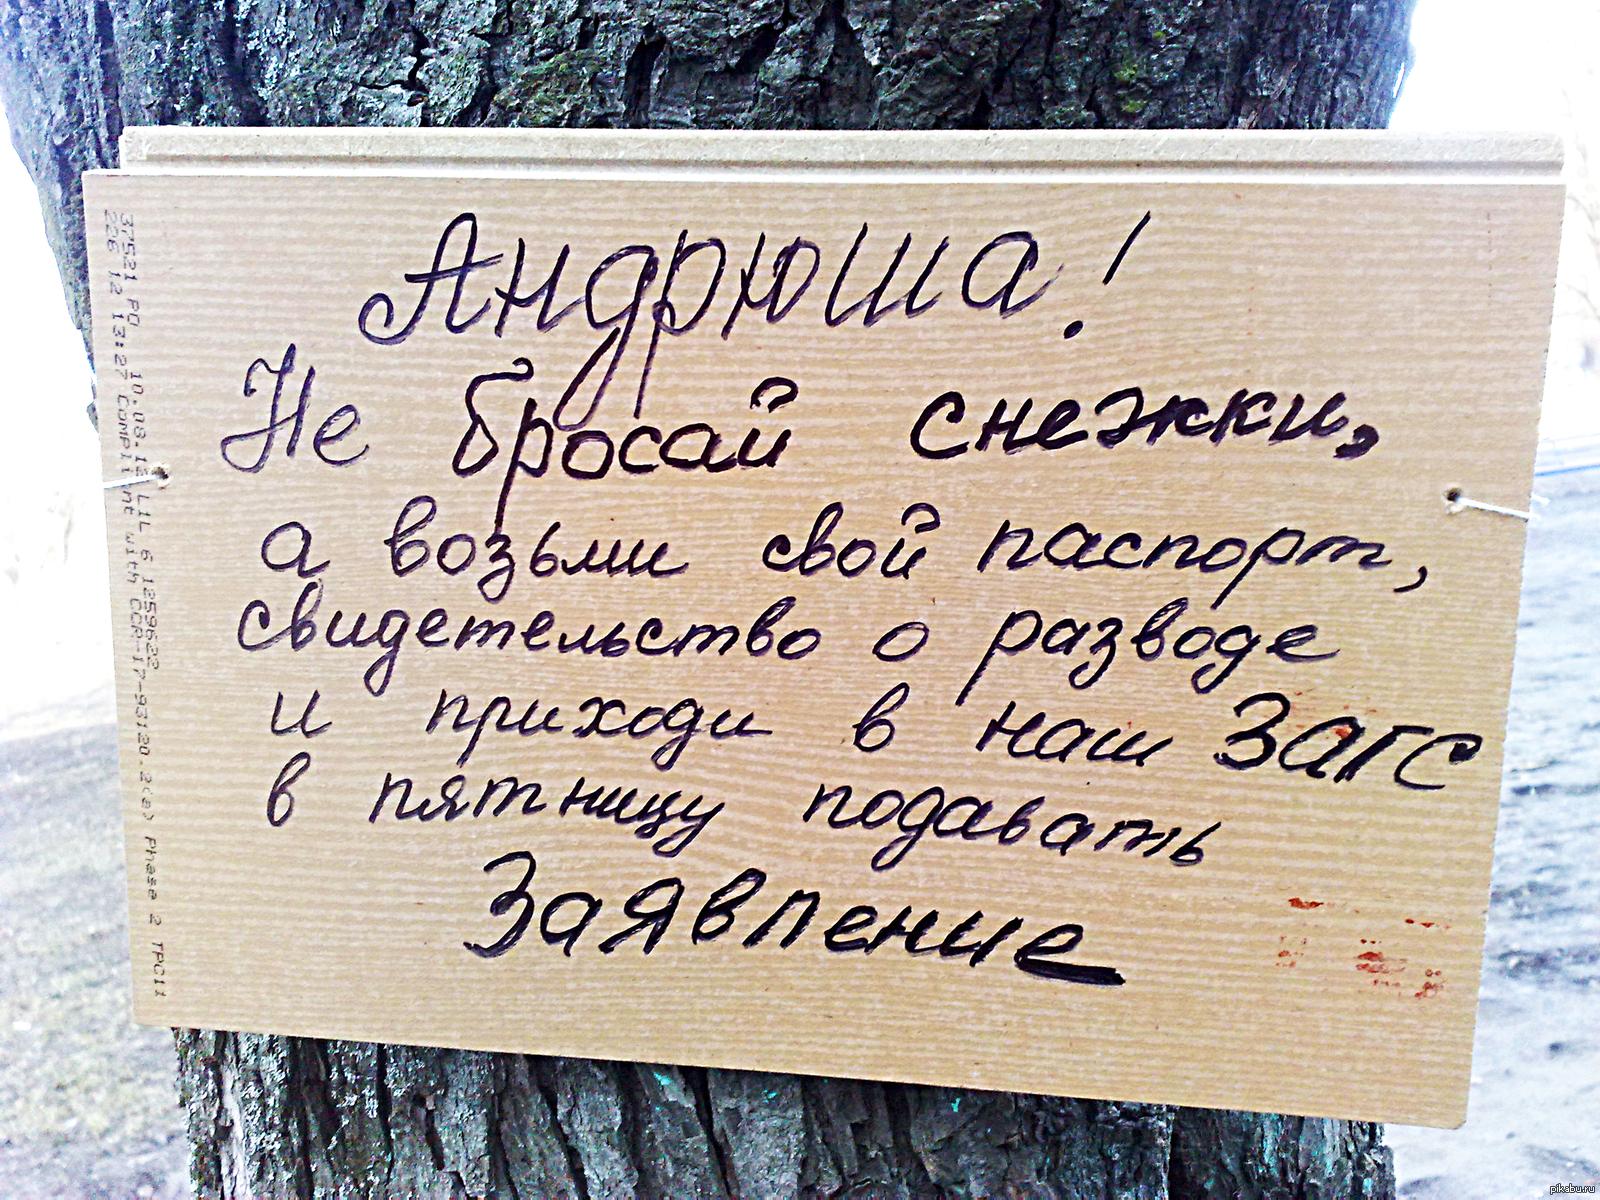 Андрюша!
Не бросай снежки,
а возьми свой паспорт,
свидетельство о разводе
и приходи в наш ЗАГС
в пятницу подавать
Заявление
37521 PO 10.08.12 L1L 6 1259622
226 12 13:27 Compliant with CCR-17-93120.2(e) Phase 2 TPC11
pikabu.ru